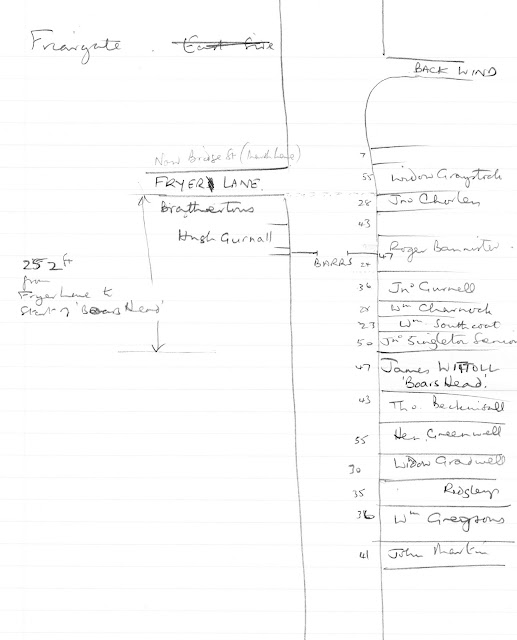 Friargate East Side
BACK WIND
Now Bridge St (
FRYER LANE
7
55 Widow Graystock
28 Jno Charles
Brathwertons
43
Hugh Gurnall
BARRS
47 Roger Bannister
24
252 ft
from
Fryer Lane to
Start of 'Boars Head'
36 Jno Gurnell
28 Wm Charnock
23 Wm Southcoat
50 Jno Singleton Senior
47 James WITTOLL
'Boars Head'
43 Tho.
55 Hen. Greenwell
30 Widow Gradwell
35
36 Wm Gregsons
41 John Martin